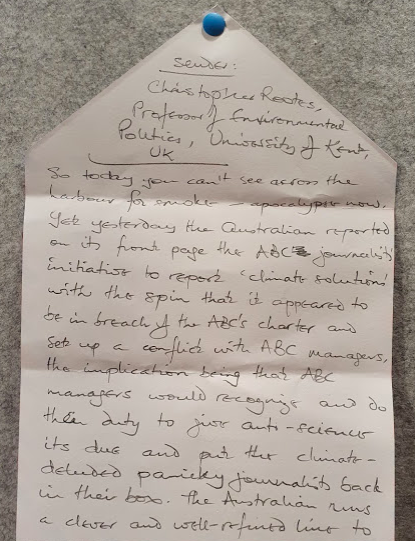 Sender:
Christopher Rootes,
Professor of Environmental
Politics, University of Kent,
UK
So today you can't see across the
harbour for smoke – apocalypse now.
Yet yesterday the Australian reported
on its front page the ABC journalists'
initiative to report 'climate solutions'
with the spin that it appeared to
be in breach of the ABC's charter and
set up a conflict with ABC managers,
the implication being that ABC
managers would recognize and do
their duty to give anti-science
its due and put the climate-
deluded panicky journalists back
in their box. The Australian runs
a clever and well-refined line to